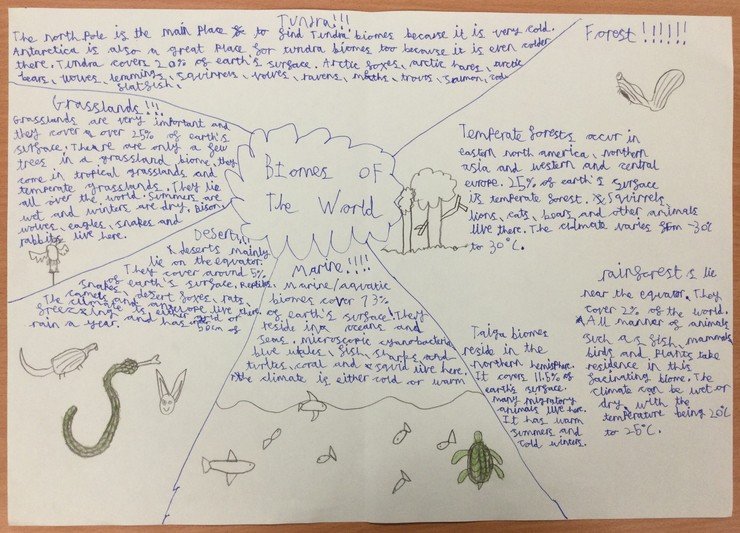 Tundra!!!
The north Pole is the main Place to find Tundra biomes because it is very cold.
Antarctica is also a great Place for tundra biomes too because it is even colder
there. Tundra covers 20% of earth's surface. Arctic foxes, arctic hares, arctic
bears, wolves, lemming, squirrels, voles, ravens, moths, trous, salmon, cod,
flatfish,
Forest!!!!!!
Temperate forests occur in
eastern north america, northern
asia and western and central
europe. 25% of earth's surface
is temperate forest. Squirrels,
lions, cats, bears and other animals
live there. The climate varies from -30c
to 30°C.
rainforest s lie
near the equator. They
cover 2% of the world.
All manner of animals
such as fish, mammals
birds and plants take
residence in this
facinating biome. The
climate can be wet or
dry with the
temperature being 20°C
to 25°C.
Taiga biomes
reside in the
northern hemisphere.
It covers 11.5% of
earth's surface.
many migratory
animals live here.
It has warm
summers and
cold winters.
Grasslands!!!
Grasslands are very important and
they cover over 25% of earth's
surface. There are only a few
trees in a grassland biome. they
come in tropical grasslands and
temperate grasslands. They lie
all over the world. Summers are
wet and winters are dry. Bison,
wolves, eagles, snakes and
rabbits live here.
Biomes OF
The World
Desert!!!
deserts mainly
lie on the equator.
They cover around 5%
of earth's surface. Reptiles,
snakes, desert foxes, rats,
camels and antelope live there.
The climate is either or
freezing and has 50cm of
rain a year.
Marine!!!!
Marine/aquatic
biomes cover 73%
of earth's surface. They
reside in oceans and
seas. microscopic cyanobacteria
blue whales, fish, sharks and
turtles, coral and squid live here.
the climate is either cold or warm